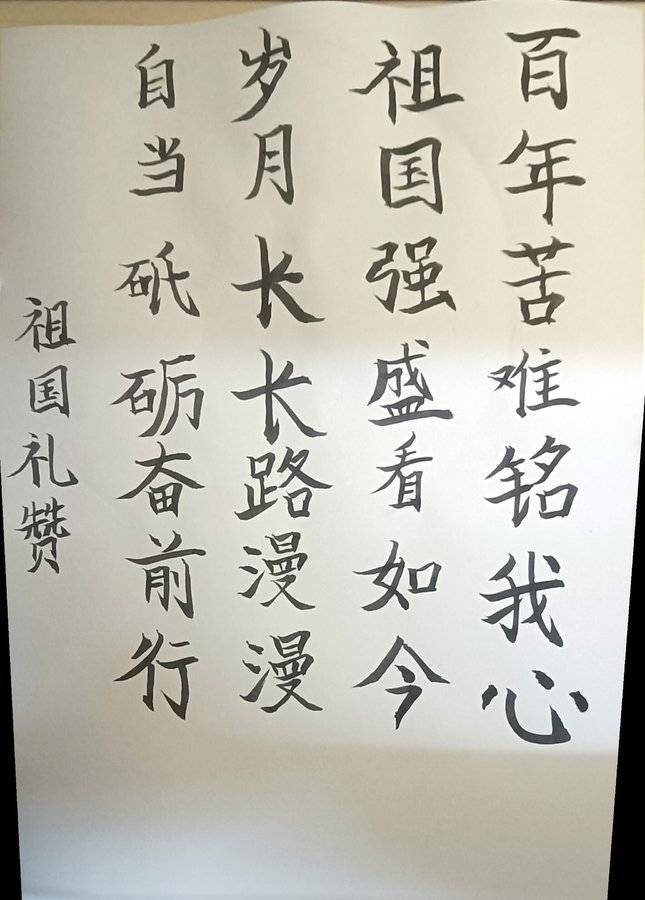 百年苦难铭我心
祖国强盛看如今
岁月长长路漫漫
自当砥砺奋前行
祖国礼赞